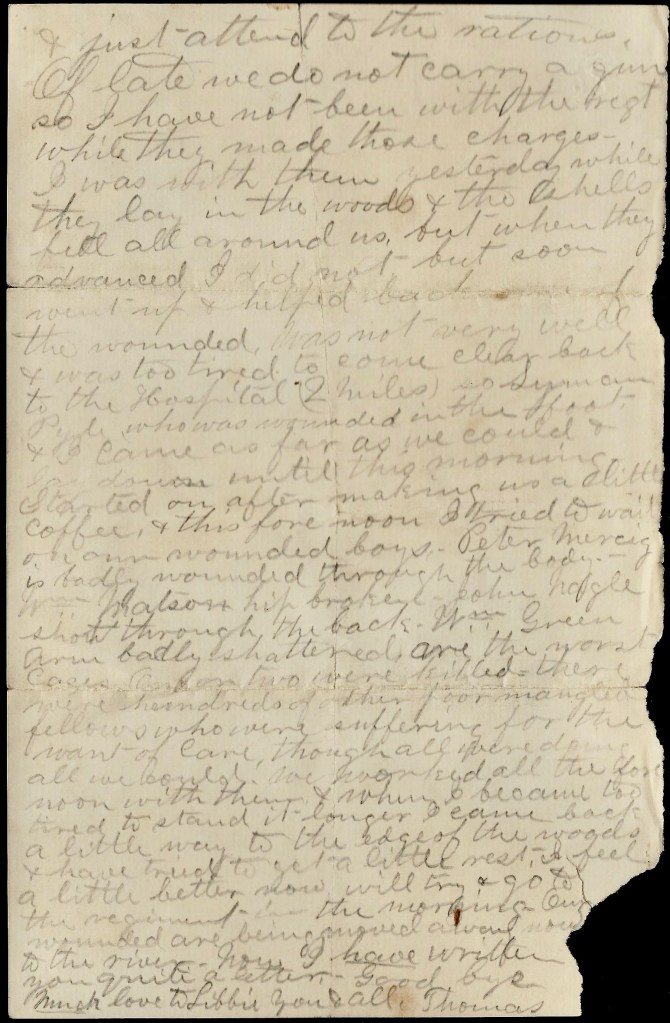 & just attend to the rations.
Of late we do not carry a gun
so I have not been with the regt
while they made those charges-
I was with them yesterday while
they lay in the woods & the shells
fell all around us, but when they
advanced I did not but soon
went up & helped back some of
the wounded, was not very well
& was too tired to come clear back
to the Hospital (2 miles) so Lyman
Pyle who was wounded in the foot
& I came as far as we could &
lay down until this morning
Started on after making us a little
coffee, & this fore noon I tried to wait
on our wounded boys.- Peter
is badly wounded through the body.-
Wm Watson hip broken - John Nagle
shot through the back - Wm Green
arm badly shattered, are the worst
Cases. or two were killed - there
were hundreds of other poor mangled
fellows who were suffering for the
want of Care, though all were doing
all we could. We worked all the fore
noon with them & when I became too
tired to stand it longer I came back
a little way to the edge of the woods
& have tried to get a little rest, & feel
a little better now will try & go to
the regiment in the morning - Our
wounded are being moved away now
to the river - Now I have written
you quite a letter - Good bye
Much love to Libbie you & all. Thomas